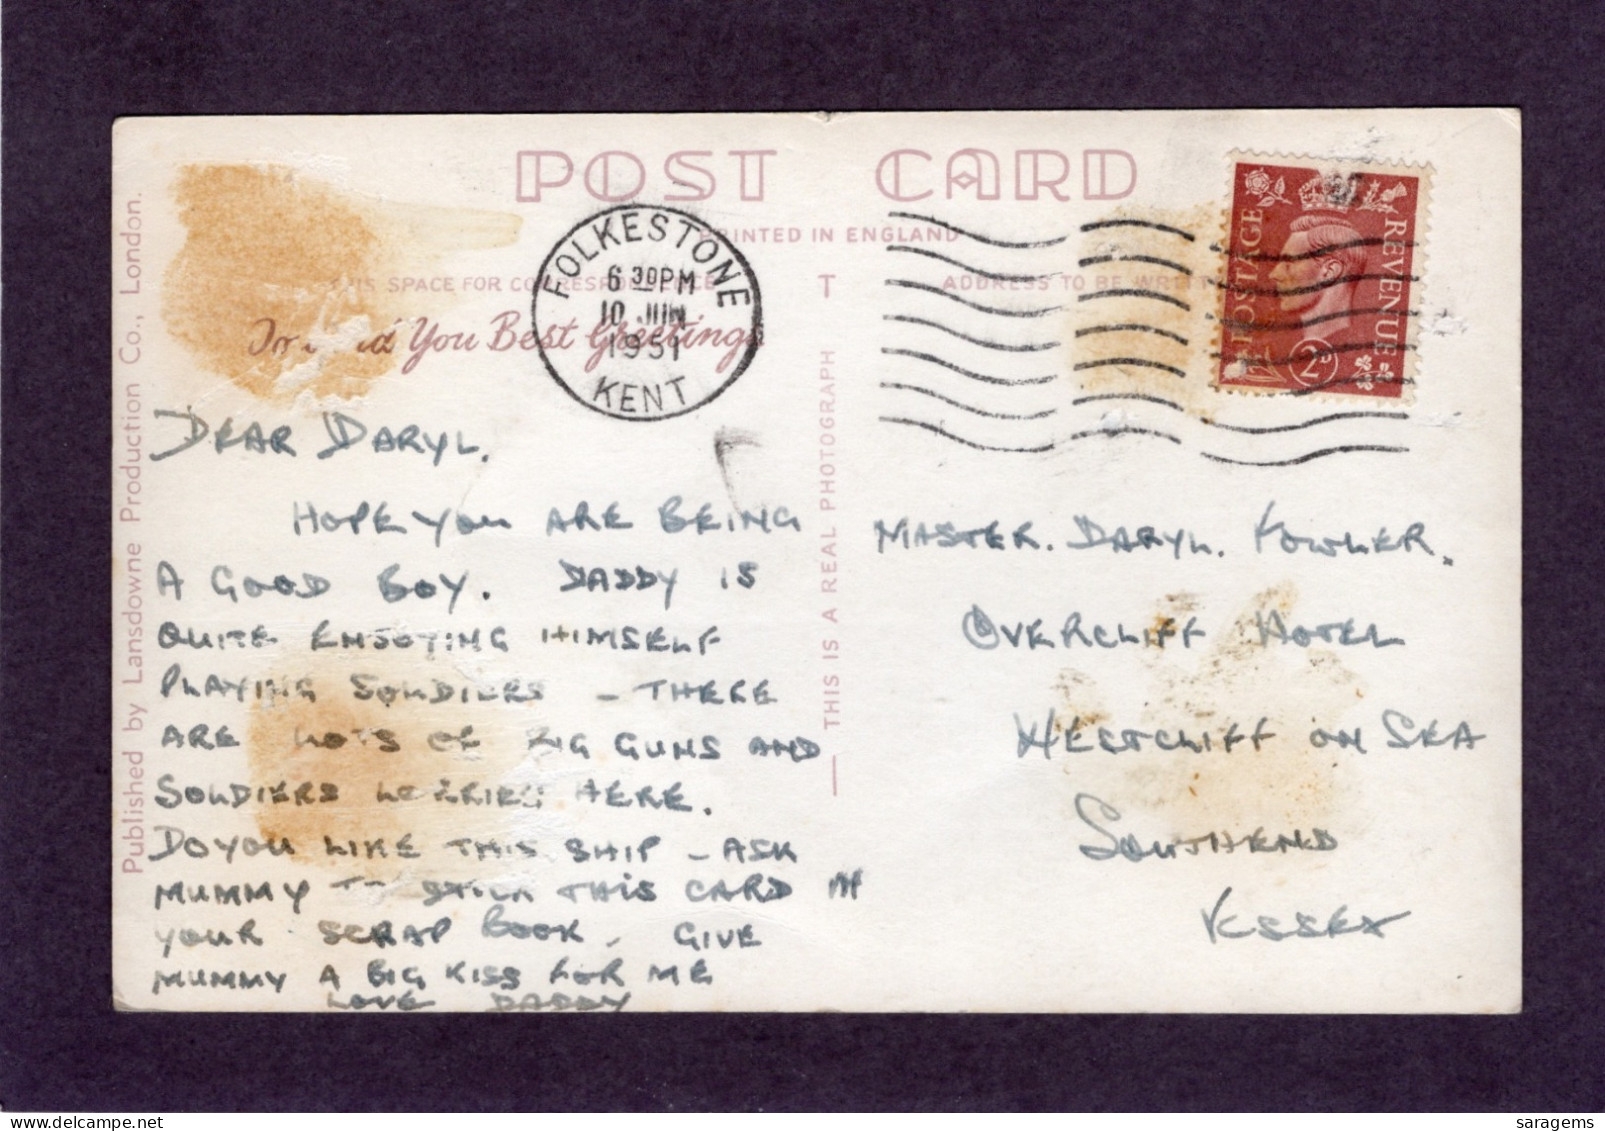 POST CARD
PRINTED IN ENGLAND
THIS SPACE FOR CORRESPONDENCE
ADDRESS TO BE
You Best Greetings
FOLKESTONE
6 30PM
10 JUN
1951
KENT
POSTAGE
REVENUE
2D
Published by Lansdowne Production Co., London.
THIS IS A REAL PHOTOGRAPH
DEAR DARYL.
HOPE YOU ARE BEING
A GOOD BOY. DADDY IS
QUITE ENJOYING HIMSELF
PLAYING SOLDIERS - THERE
ARE LOTS OF BIG GUNS AND
SOLDIERS HERE.
DO YOU LIKE THIS SHIP - ASK
MUMMY TO STICK THIS CARD IN
YOUR SCRAP BOOK. GIVE
MUMMY A BIG KISS FOR ME
LOVE DADDY
MASTER. DARYL. FOWLER.
OVERCLIFF HOTEL
WESTCLIFF ON SEA
SOUTHEND
ESSEX
saragems